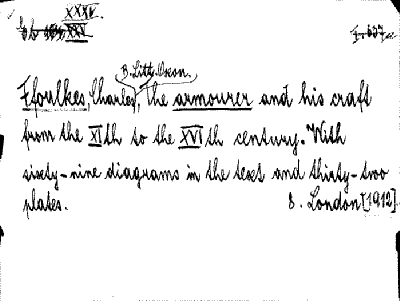 XXXV.
B. Litt. Oxon.
Ffoulkes, Charles, The armourer and his craft
from the XIth to the XVIth century. With
sixty-nine diagrams in the text and thirty-two
plates.
8. London [1912]